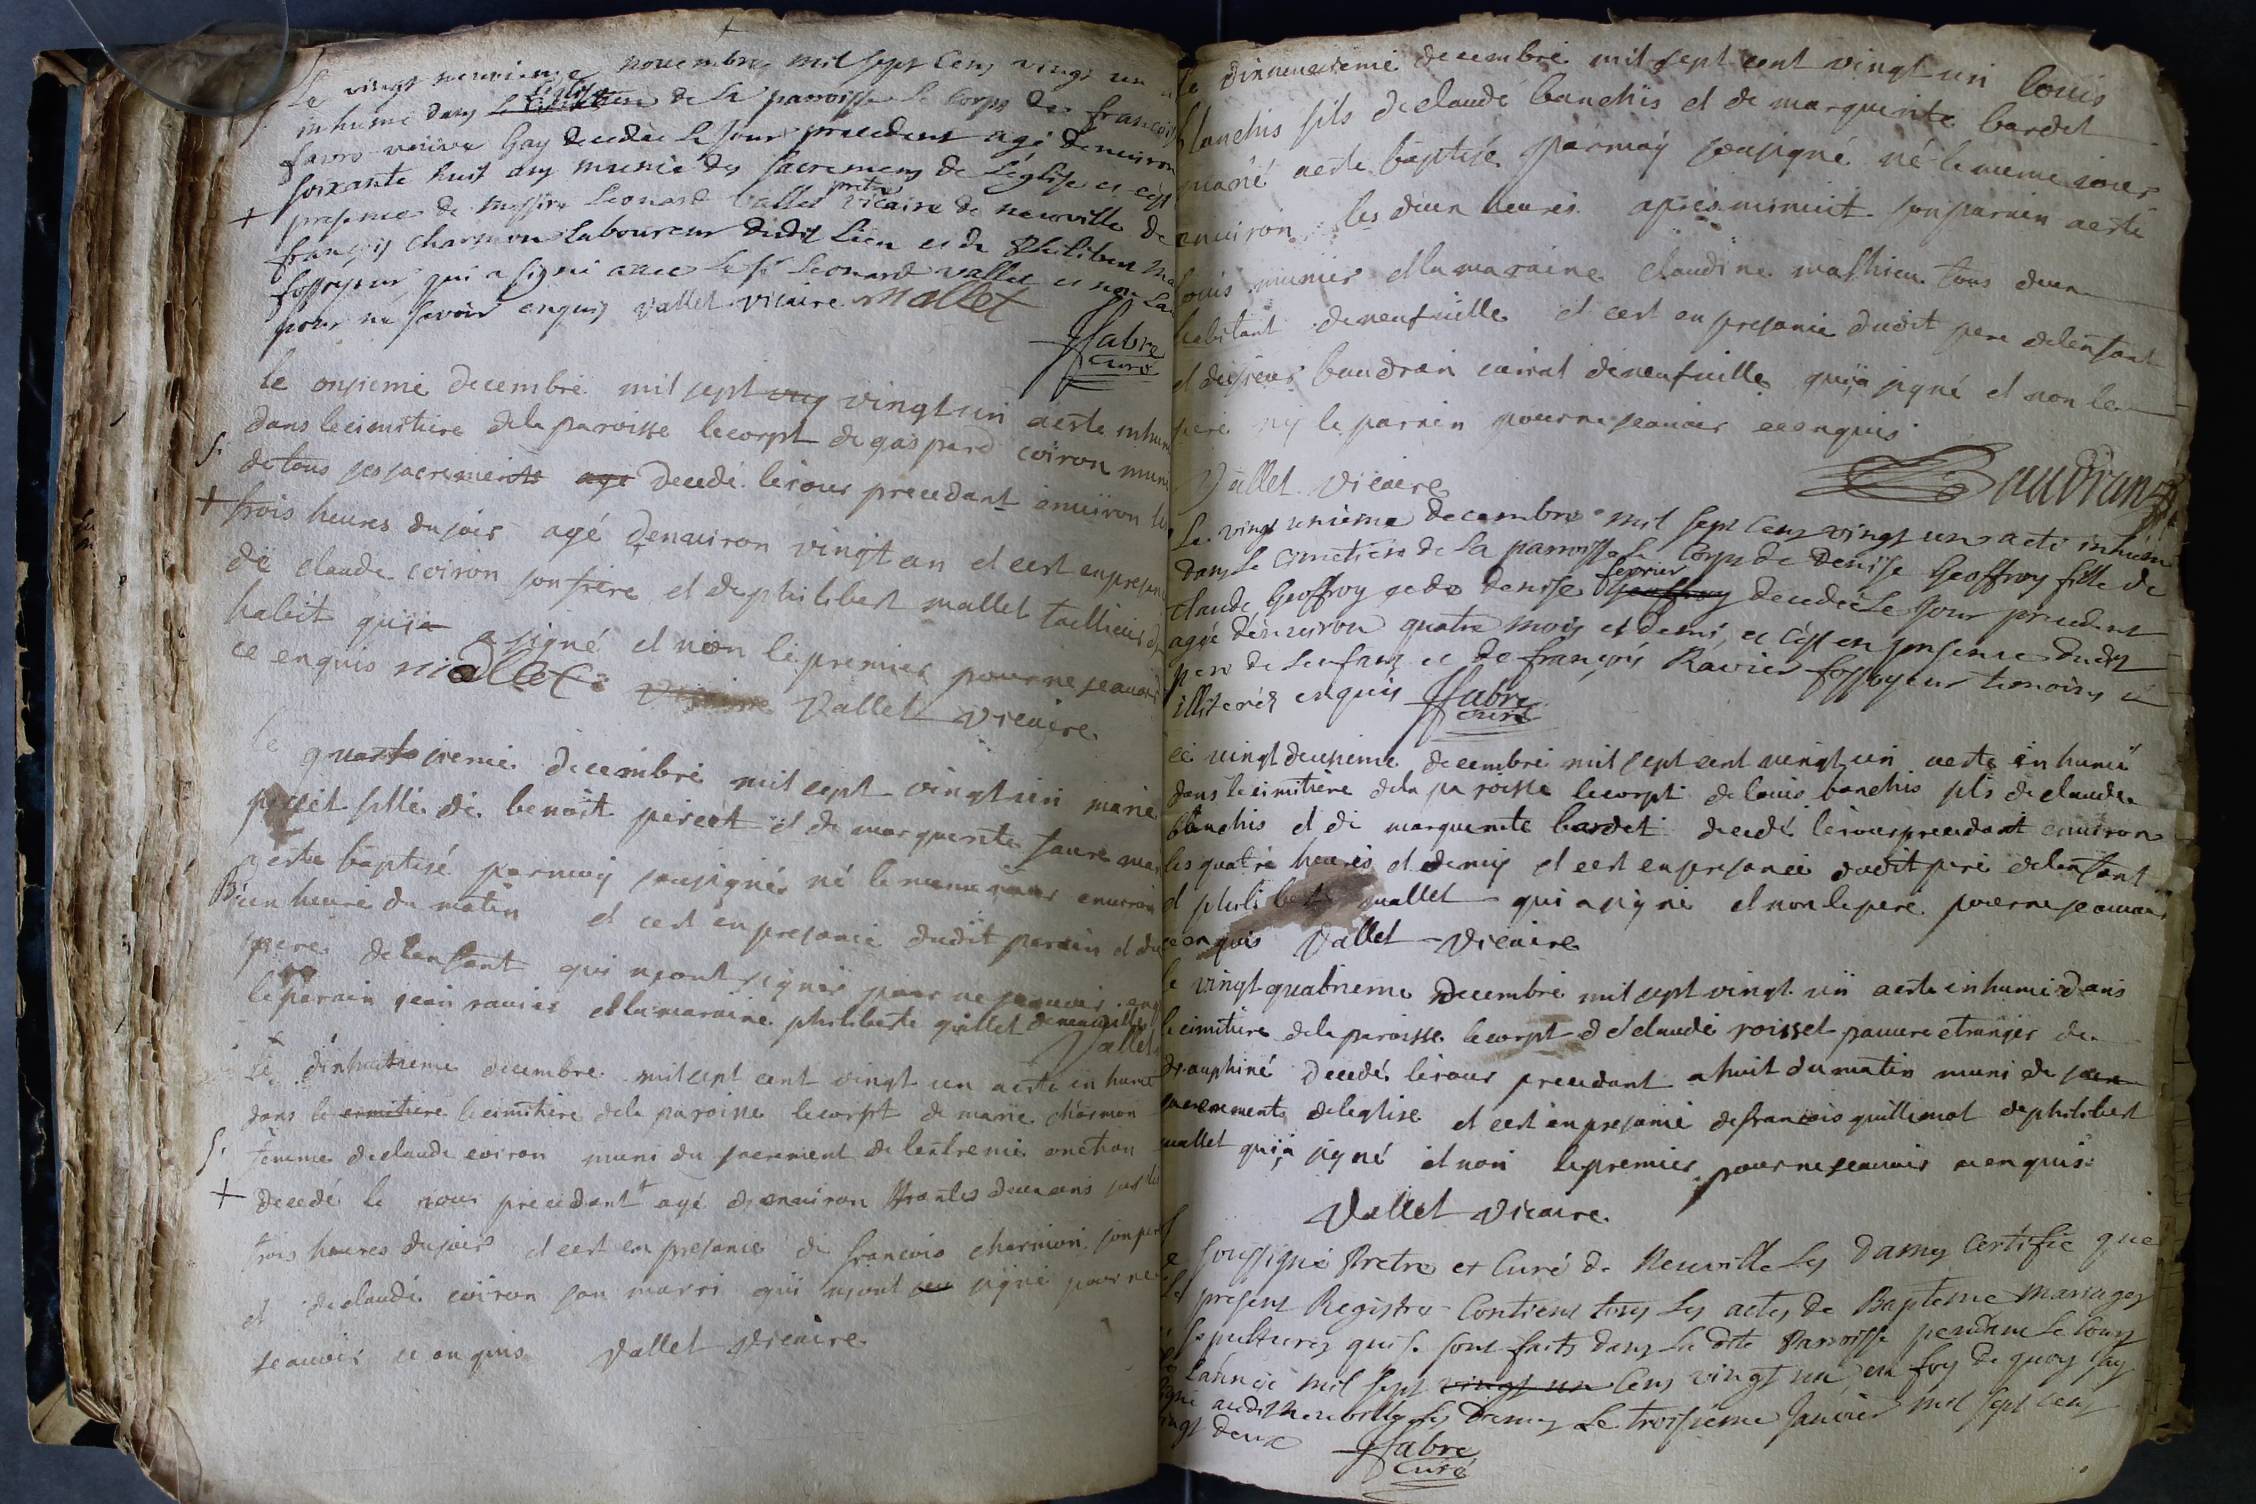 Le vingt neuvieme novembre mil sept cens vingt un a
inhumé dans l'Eglise de la parroisse le corps de francois
favre veuve Gay decedée le jour precedent agé denviron
soixante huit ans munie des sacremens de L'église et c'est
presence de messire Leonard Vallet pretre vicaire de neuville de
françois charmon laboureur dudit Lieu et de philibert ma
fossoyeur qui a signé avec le sr Leonard vallet et non La
pour ne savoir enquis Vallet vicaire Mallet
ffabre
curé
le onsieme decembre mil sept cens vingt un aesté inhum
dans le cimetiere dela paroisse lecorpt de gaspard coiron muni
de tous ses sacrements agé decedé lejour precedant enuiron les
trois heures du soir agé denuiron vingt an et cest enpresen
de claude coiron son frere et de philibert mallet tailleur d
habit quij a signé et non le premier pour ne scauoir
ce enquis Mallet Vallet vicaire
le quatorsieme decembre mil sept vingt un marie
percet fille de benoit percet et de marguerite faure mar
aeste baptisé parmoy sousigné né le meme jour enuiron
une heure du matin et cest en presance dudit parain et du
pere delenfant qui nont signés pour ne scauoir enq
le parain jean rauier et la maraine philiberte guillet deneuville
Vallet
le dixhuitieme decembre mil sept cent vingt un aesté inhumé
dans le cimitiere le cimitiere dela paroisse lecorpt de marie charmon
femme declaude coiron muni du sacrement de lextreme onction
decedé le jour precedant agé denuiron trantes deux ans sur les
trois heures du soir et cest en presance de francois charmion son pere
et declaude coiron son marri qui nont sceu signé pour ne
scauoir ce enquis Vallet vicaire
le dixneuuieme decembre mil sept cent vingt un louis
blanchis fils declaude banchis et de marguerite bardet
marié aeste baptisé parmoy sousigné né le meme jour
enuiron les deux heures apres minuit son parain aesté
louis munier et la maraine claudine mathieu tous deux
habitant deneufuille et cest en presance dudit pere delenfant
et du sieur baudran curial deneufuille quij a signé et non le
pere ny le parain pour ne scauoir ce enquis
Vallet vicaire Baudran
Le vingt unieme decembre mil sept cens vingt un a eté inhumé
dans Le cimetiere de La parroisse le corps de Denise Geoffroy fille de
Claude Geoffroy et de Denise fevrier Geoffroy decedée Le jour precedent
agée denuiron quatre mois et demi, et c'est en presence dudit
pere de Lenfant et de françois Ravier fossoyeur temoins et
illiterés enquis ffabre
curé
le vingt deuxieme decembre mil sept cent vingt un aesté inhumé
dans le cimitiere dela paroisse lecorpt de louis banchis fils declaude
blanchis et de marguerite bardet decedé lejour precedant enuiron
les quatre heures et demy et cest en presance dudit pere delenfant
et philibert mallet qui a signé et non le pere pour ne scauoir
ce enquis Vallet vicaire
le vingt quatrieme decembre mil sept vingt un aesté inhumé dans
le cimitiere dela paroisse lecorpt de claude roisset pauure etranger de
dauphiné decedé lejour precedant a huit du matin muni de sacr
sacrements deleglise et cest en presance defrancois guillimot dephilibert
mallet quij a signé et non le premier pour ne scauoir ce enquis
Vallet vicaire
Je soussigné Pretre et Curé de Neuville Les Dames Certifie que
Le present Registre Contient tous Les actes de Bapteme mariages
sepultures qui se sont faits dans La dite Parroisse pendant Le cours
de Lannée mil sept vingt un cens vingt un en foy de quoy jay
signé audit Neuville les Dames Le troisieme janvier mil sept cens
vingt deux ffabre
curé